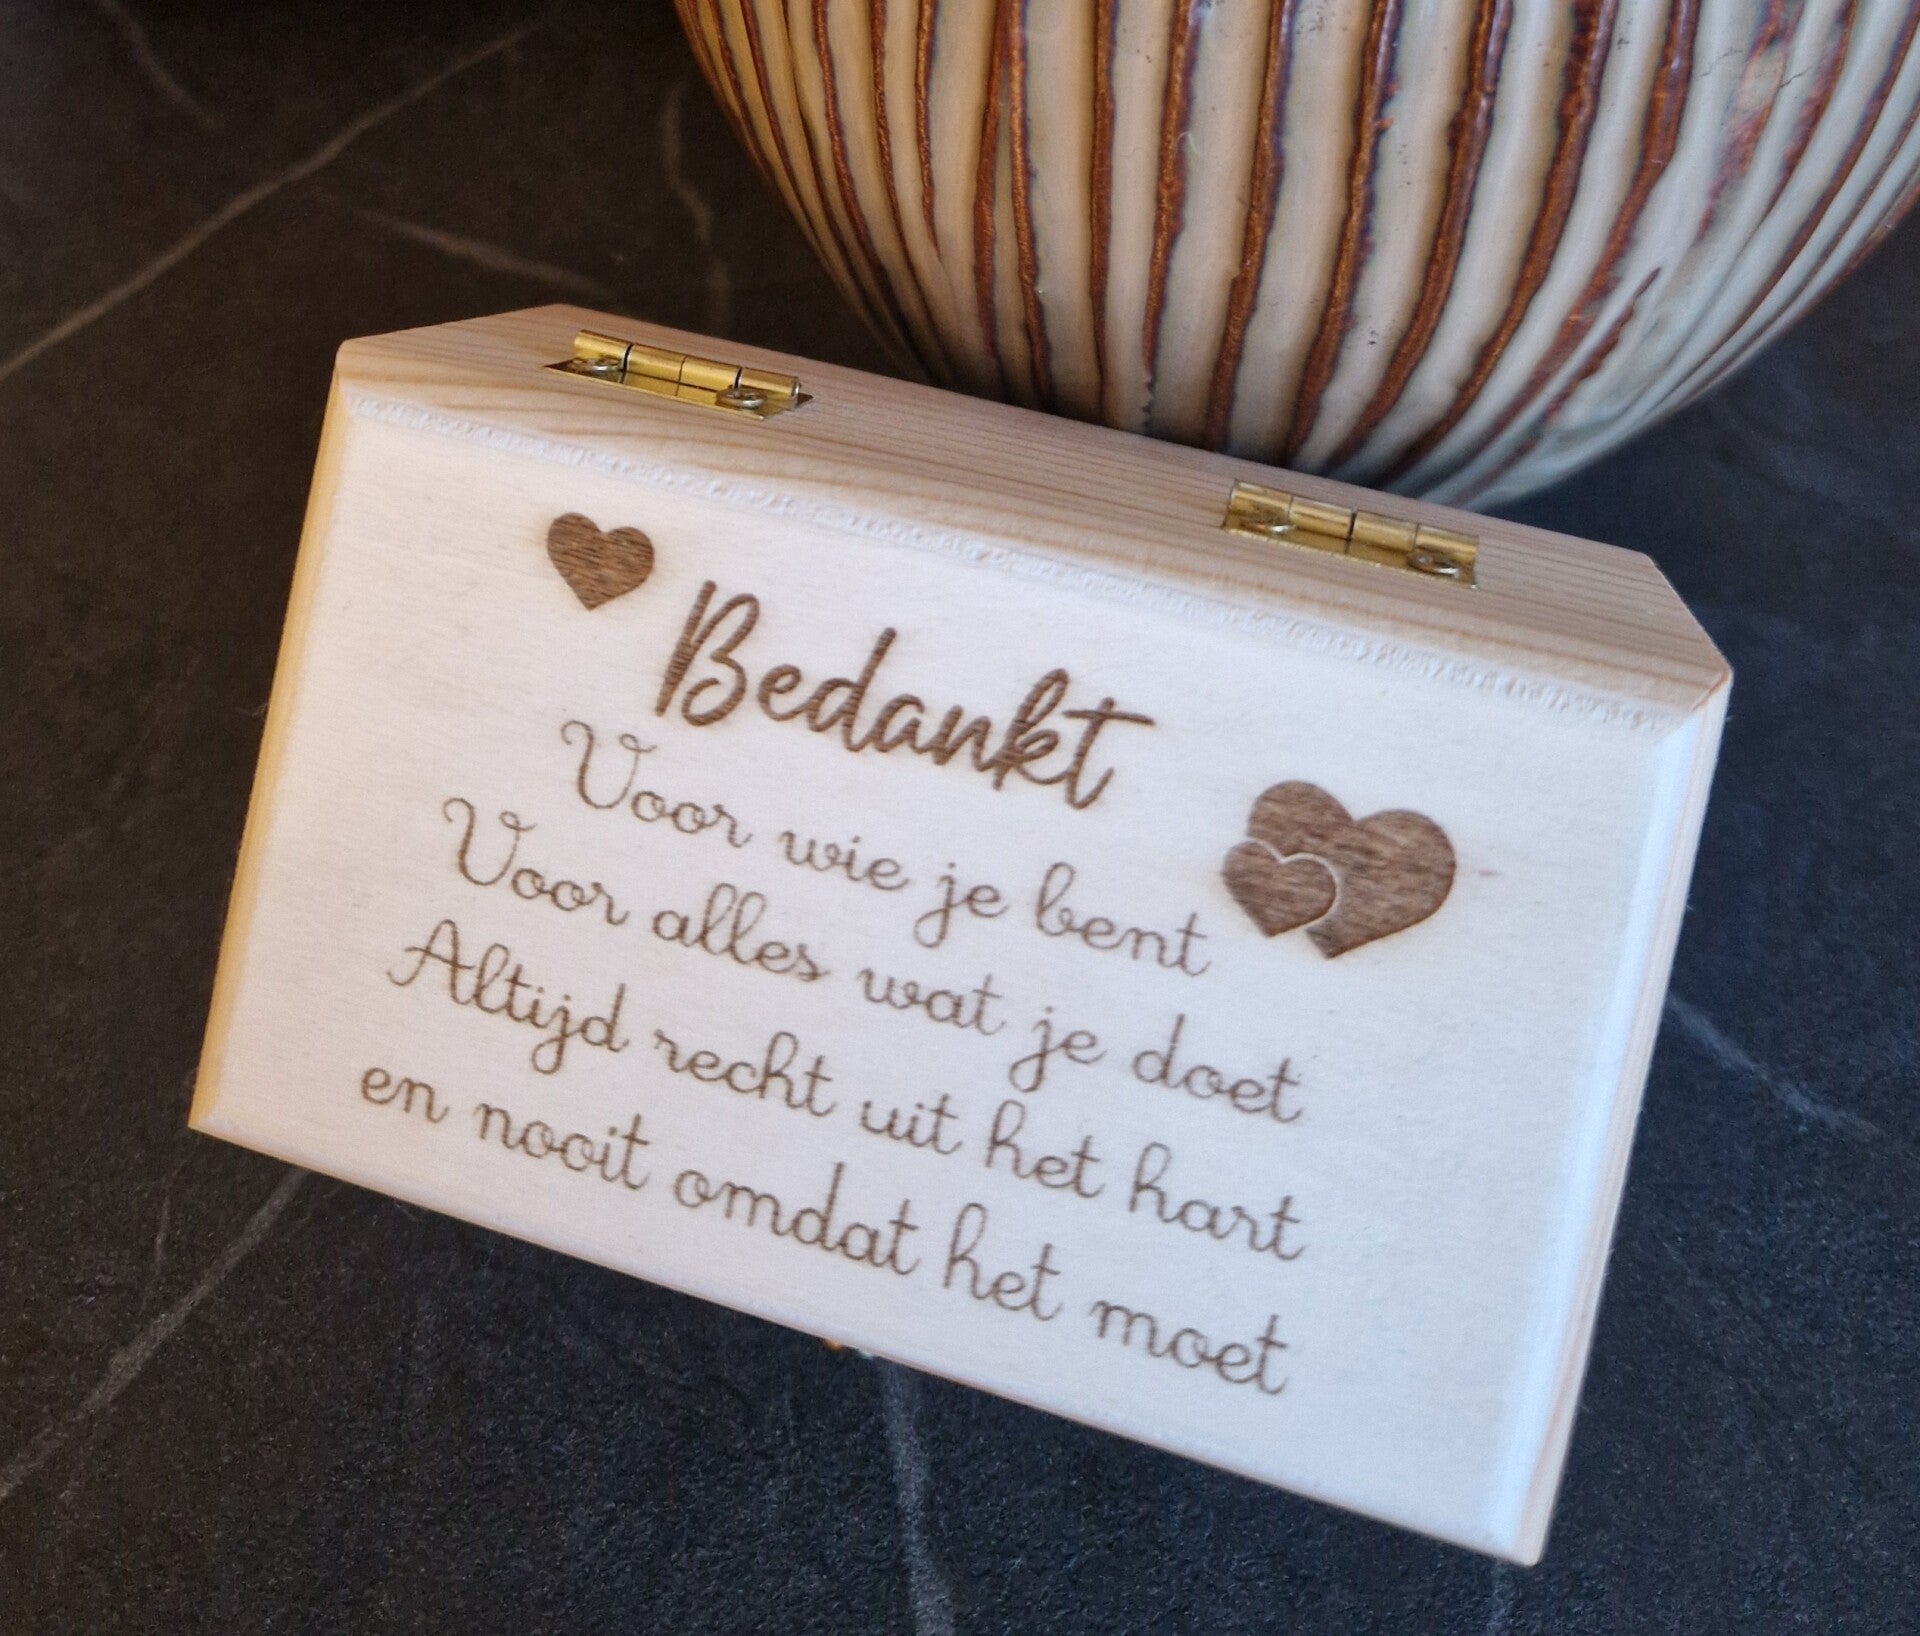 Bedankt
Voor wie je bent
Voor alles wat je doet
Altijd recht uit het hart
en nooit omdat het moet